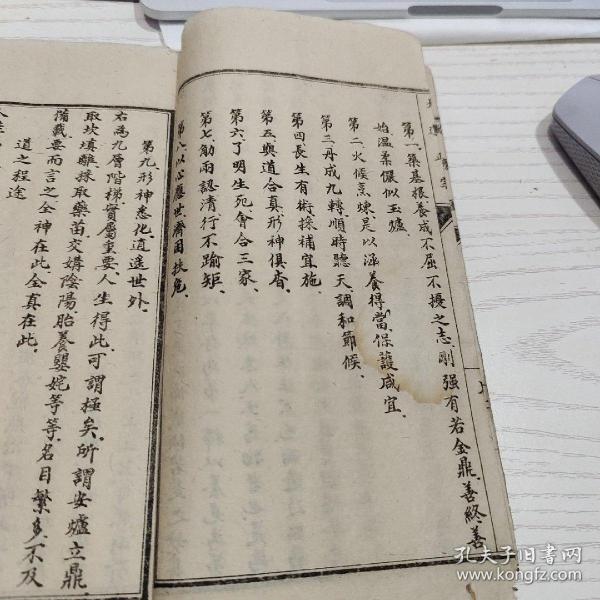 第一、築基根養成不屈不擾之志、剛强有若金鼎、善終善
始温柔儼似玉爐
第二、火候烹煉是以涵養得當、保護咸宜、
第三、丹成九轉、順時聽天、調和節候、
第四、長生有術、採補宜施、
第五、與道合真、形神俱杳、
第六、了明生死、會合三家、
第七、勘雨認清、行不踰矩、
第八、以心應世、濟困扶危、
第九、形神悉化、逍遥世外、
右為九層階梯、實屬重要、人生得此、可謂極矣、所謂安爐立鼎、
取坎填離、採取藥苗、交媾陰陽、胎養嬰姹、等等名目繁多、不及
備載、要而言之、全神在此、全真在此、
道之程途
孔夫子旧書网
www.kongfz.com